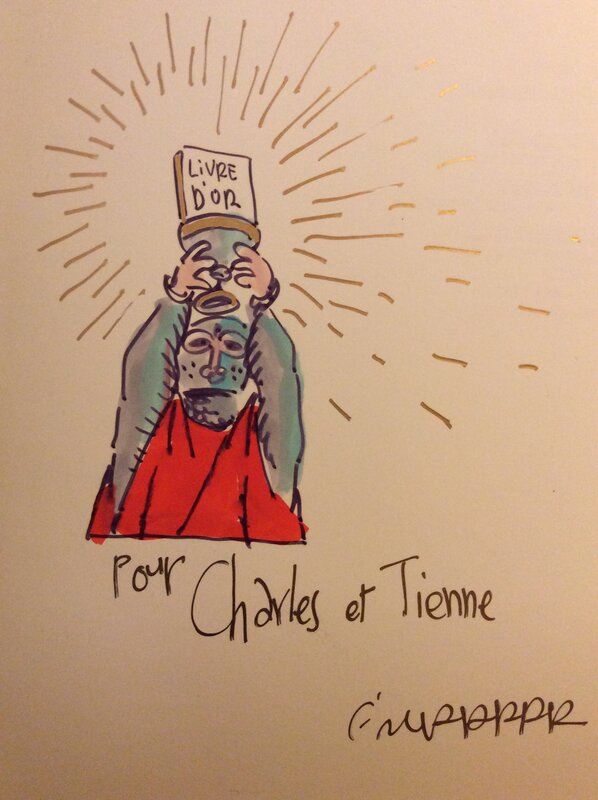 LiVRE
D'OR
Pour Charles et Tienne